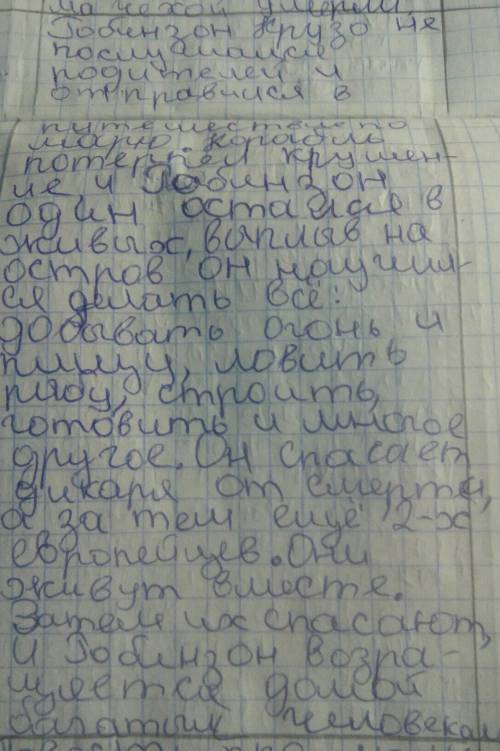 чехой умерли
Робинзон Крузо не
послушался
родителей и
отправился в
путешествие по
морю. Корабль
потерпел крушен-
ие и Робинзон
один остался в
живых, выплыв на
остров он научил-
ся делать всё:
добывать огонь и
пищу, ловить
рыбу, строить,
готовить и многое
другое. Он спасает
дикаря от смерти,
а за тем ещё 2-х
европейцев. Они
живут вместе.
Затем их спасают,
и Робинзон возра-
щяется домой
багатым человеком